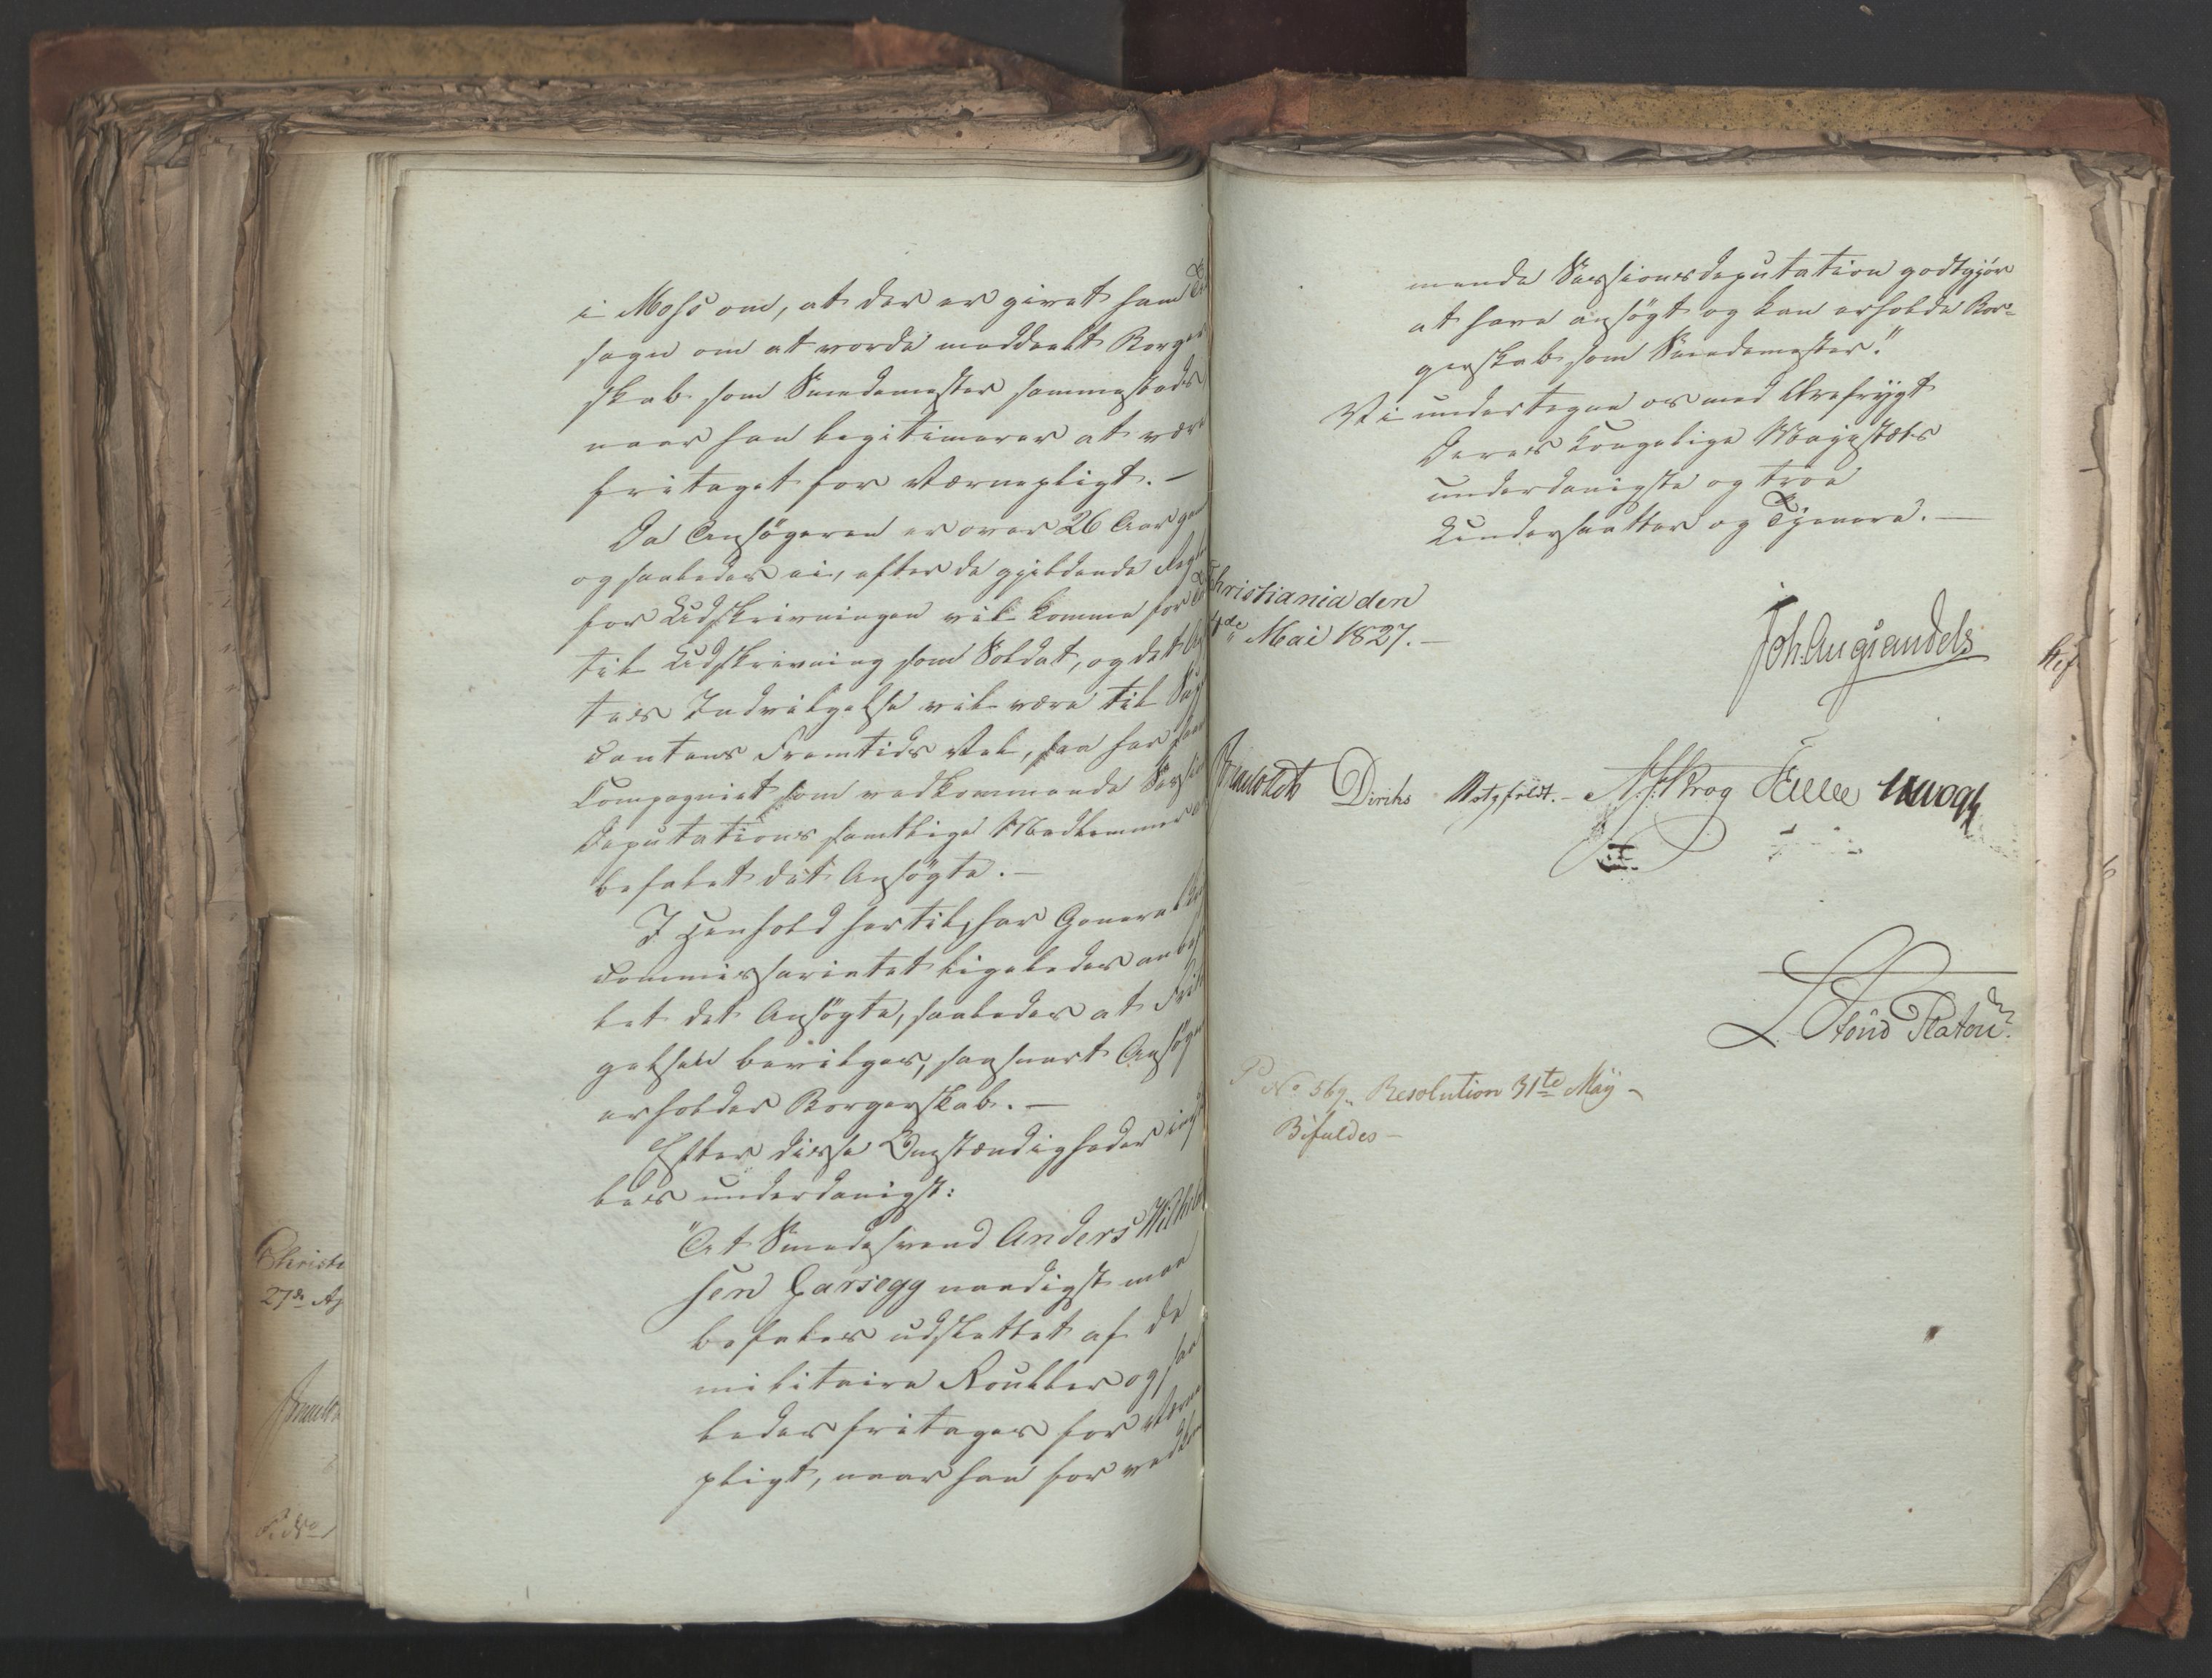 i Moss om, at der er givet ham
sagn om at vorde meddeelt Borger
skab som Smedemester sammesteds,
naar han legitimerer at være
fritaget for Værnepligt. —
Da Ansøgeren er over 26 Aar gam
og saaledes ei, efter de gjeldende Reg
for Udskrivningen vil komme for
til Udskrivning som Soldat, og det
tes Indvilgelse vil være til Sup
cantens Fremtids Vel, saa har saa
Compagniet som vedkommende Sessi
Deputations samtlige Medlemmer
befalet det Ansøgte. —
I Henhold hertil, har General
commissariatet ligeledes anbefa
let det Ansøgte, saaledes at Frita
gelsen bevilges, saasnart Ansøge
erholder Borgerskab. —
Efter disse Omstændigheder
les underdanigst:
"At Smedesvend Anders Wilhelm
sen Garsegg naadigst maa
befales udslettet af de
militaire Rouller og saa
ledes fritages for Værne
pligt, naar han for vedkom
mende Sessionsdeputation godtgjør
at have ansøgt og kan erholde Bor-
gerskab som Smedemester."
Vi undertegne os med Ærefrygt
Deres Kongelige Majestæts
underdanigste og troe
Undersaatter og Tjenere. —
Christiania den
4de Mai 1827. —
Joh. Aug. Sandels
Diriks Motzfeldt. — Krog
L. Stoud Platou
P No 569. Resolution 31te May —
Bifaldes —
Christi
27de Ap
P. No